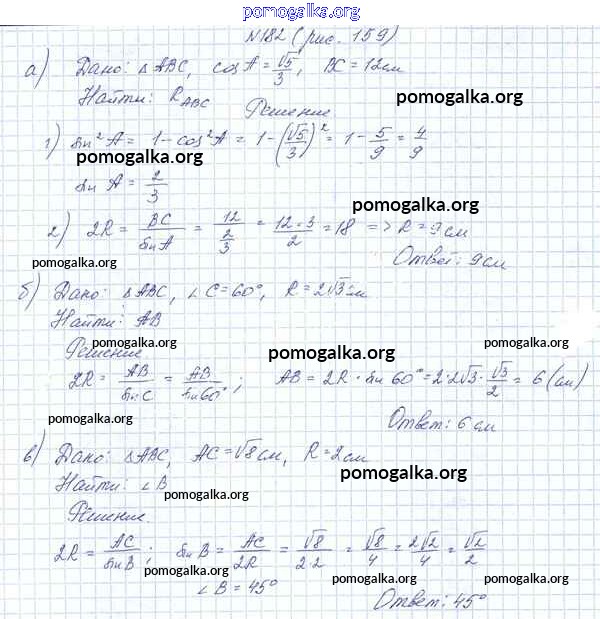 pomogalka.org
№182 (рис. 159)
а) Дано: △ABC, cosA = √5/3, BC = 12см
Найти: R_ABC
pomogalka.org
Решение
1) sin²A = 1 - cos²A = 1 - (√5/3)² = 1 - 5/9 = 4/9
pomogalka.org
sin A = 2/3
pomogalka.org
2) 2R = BC/sinA = 12/(2/3) = 12·3/2 = 18 => R = 9см
pomogalka.org
Ответ: 9см
б) Дано: △ABC, ∠C = 60°, R = 2√3см
Найти: AB
Решение
pomogalka.org
pomogalka.org
pomogalka.org
2R = AB/sinC = AB/sin60°; AB = 2R · sin 60° = 2·2√3·√3/2 = 6 (см)
pomogalka.org
pomogalka.org
Ответ: 6 см
в) Дано: △ABC, AC = √8см, R = 2см
pomogalka.org
Найти: ∠B
pomogalka.org
Решение.
2R = AC/sinB; sinB = AC/2R = √8/2·2 = √8/4 = 2√2/4 = √2/2
pomogalka.org
pomogalka.org
pomogalka.org
∠B = 45°
Ответ: 45°